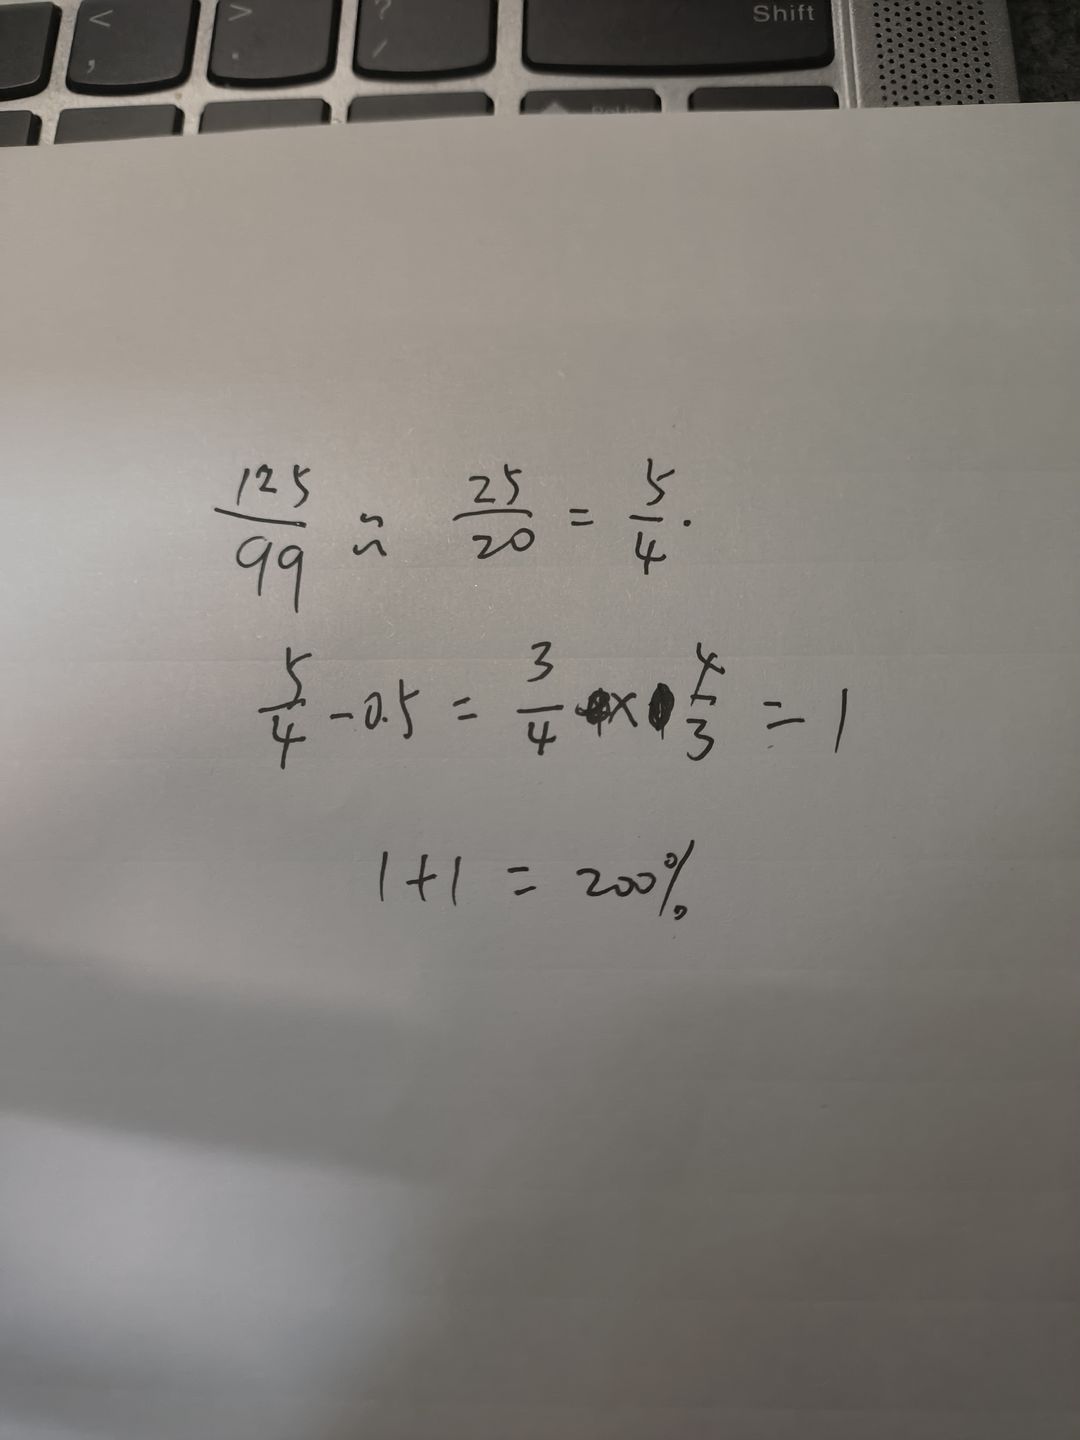 < ,
> .
? /
Shift
125/99 ≈ 25/20 = 5/4.
5/4 - 0.5 = 3/4 × 4/3 = 1
1+1 = 200%